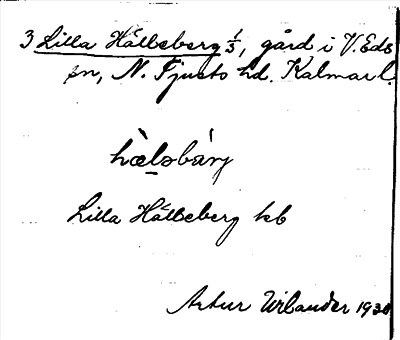 3 Lilla Hälleberg 1/3, gård i V. Eds
sn, N. Tjusts hd. Kalmar l.
hæ̀ləbàrj
Lilla Hälleberg kb
Artur Wilander 1930